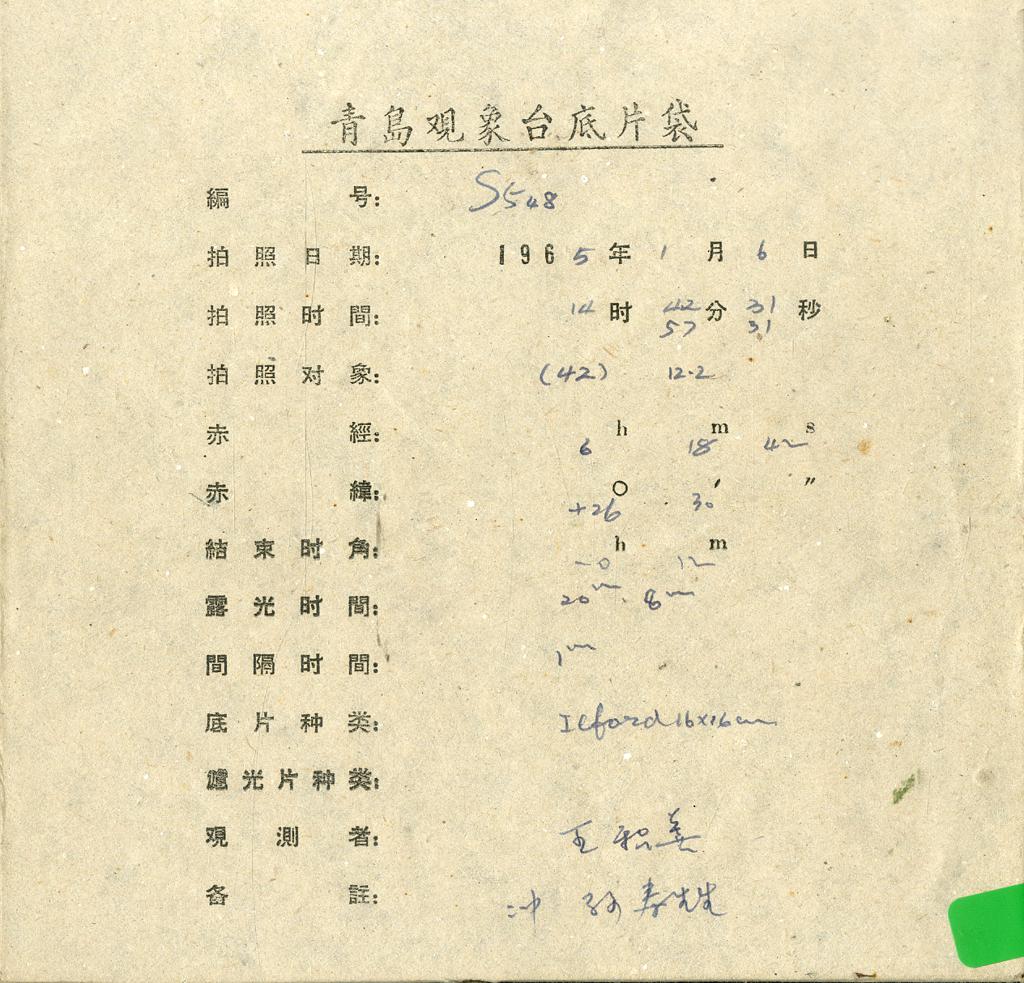 青島观象台底片袋
編号: S548
拍照日期: 1965年1月6日
拍照时間: 14时42分31秒
57 31
拍照对象: (42) 12.2
赤經: 6h 18m 42s
赤緯: +26° 30′ ″
結束时角: -0h 12m
露光时間: 20m 8m
間隔时間: 1m
底片种类: Ilford 16x16cm
濾光片种类:
观測者: 王
备註: 冲 寿先生